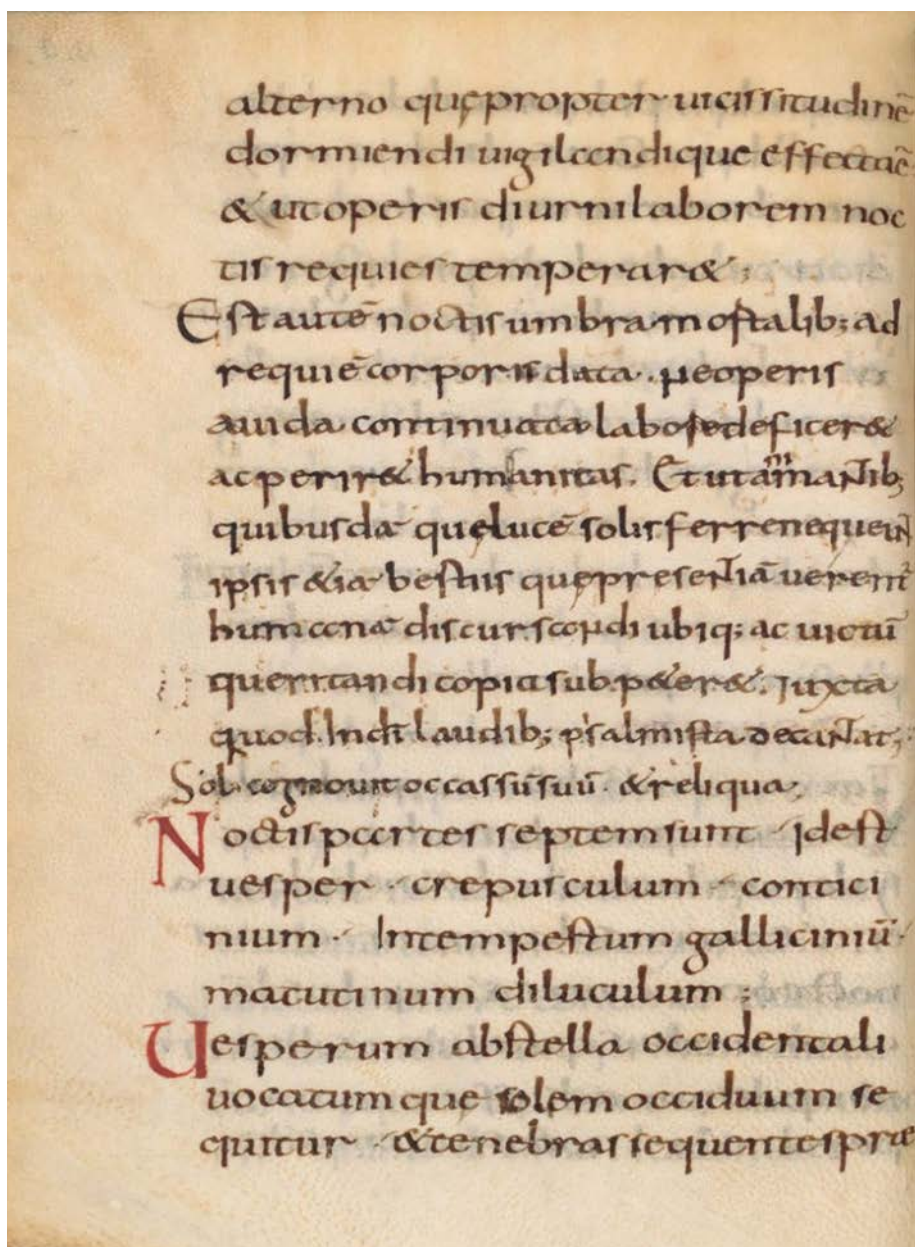 alterno quę propter uicissitudinē
dormiendi uigilandique effectaē
& ut operis diurni laborem noc
tis requies temperar&;
Est autē noctis umbra mortalib; ad
requiē corporis data. Ne operis
auida continuata labore deficer&
ac perir& humanitas. Et ut animantib;
quibusdā quę lucē solis ferre nequeunt
ipsis &iā bestiis quę presentiā uerentʳ
humanā discursandi ubiq; ac uictū
queritandi copia subpeter&. Iuxta
quod In laudib; psalmista decantat;
Sol cognouit occassū suū. & reliqua;
Noctis partes septem sunt · Idest
uesper · crepusculum · contici
nium · Intempestum galliciniū ·
matutinum diluculum ;
Uesperum ab stella occidentali
uocatum que solem occiduum se
quitur · & tenebras sequentes prae